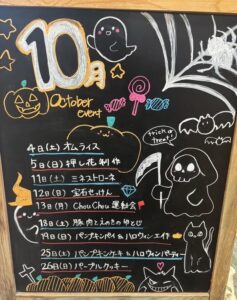 10月
October
event
trick or
treat!
4日(土) オムライス
5日(日) 押し花制作
11日(土) ミネストローネ
12日(日) 宝石せっけん
13日(月) ChouChou 運動会
18日(土) 豚肉と
19日(日) パンプキンパイ & ハロウィン
25日(土) パンプキンケーキ & ハロウィンパーティー
26日(日) パープルクッキー